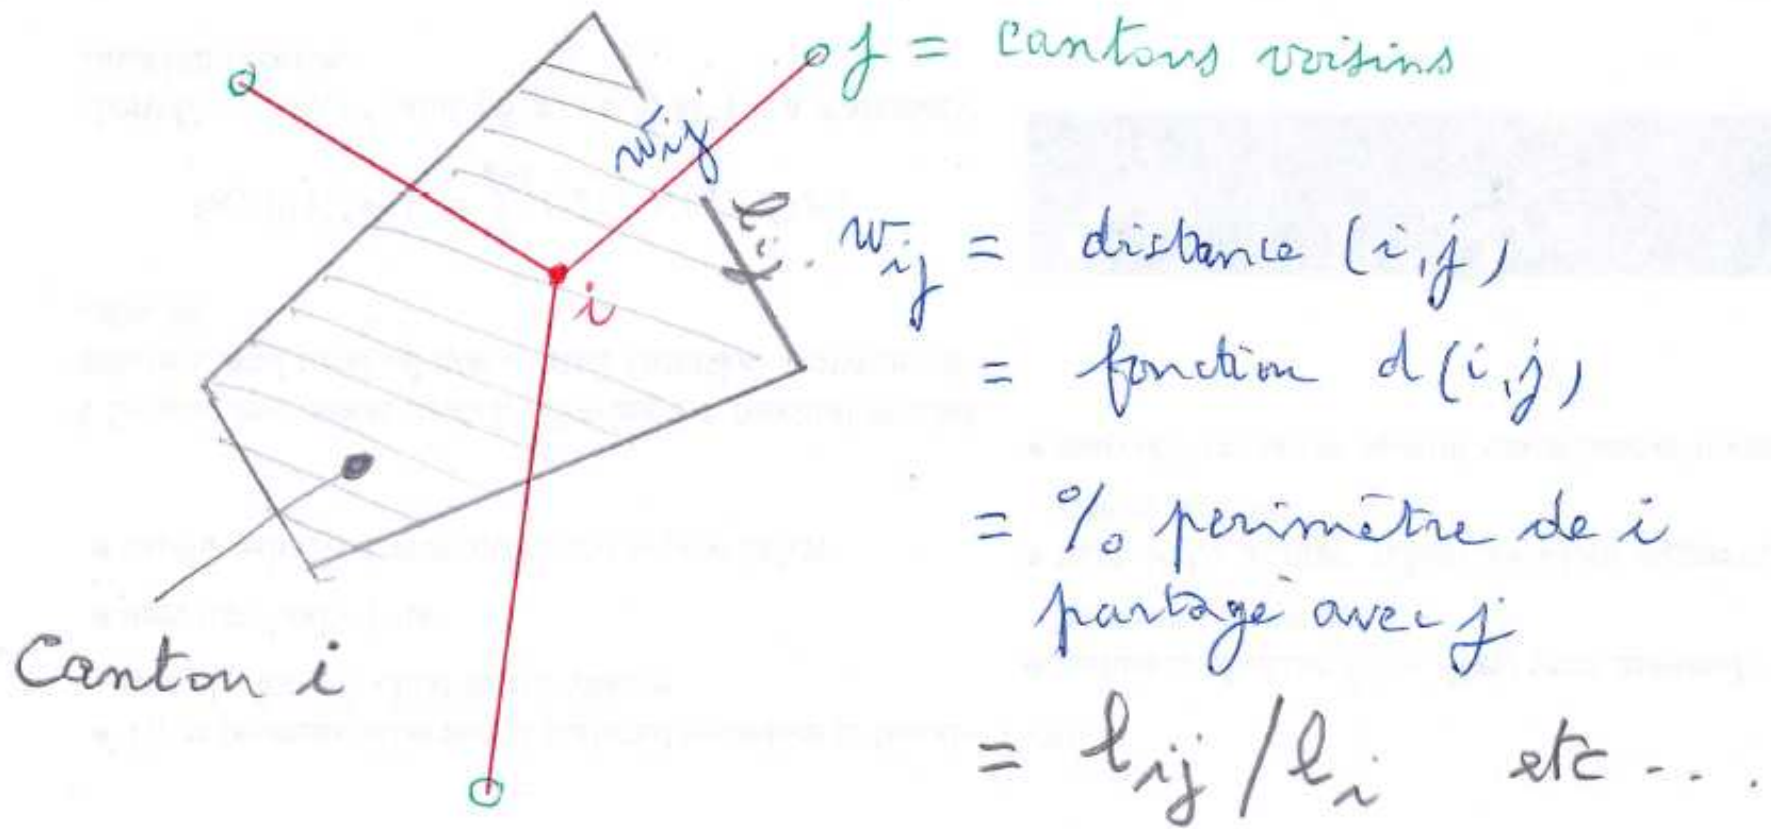 j = cantons voisins
wij
lij
i
wij = distance (i,j)
= fonction d(i,j)
= % perimètre de i
partagé avec j
Canton i
= lij / li etc ....